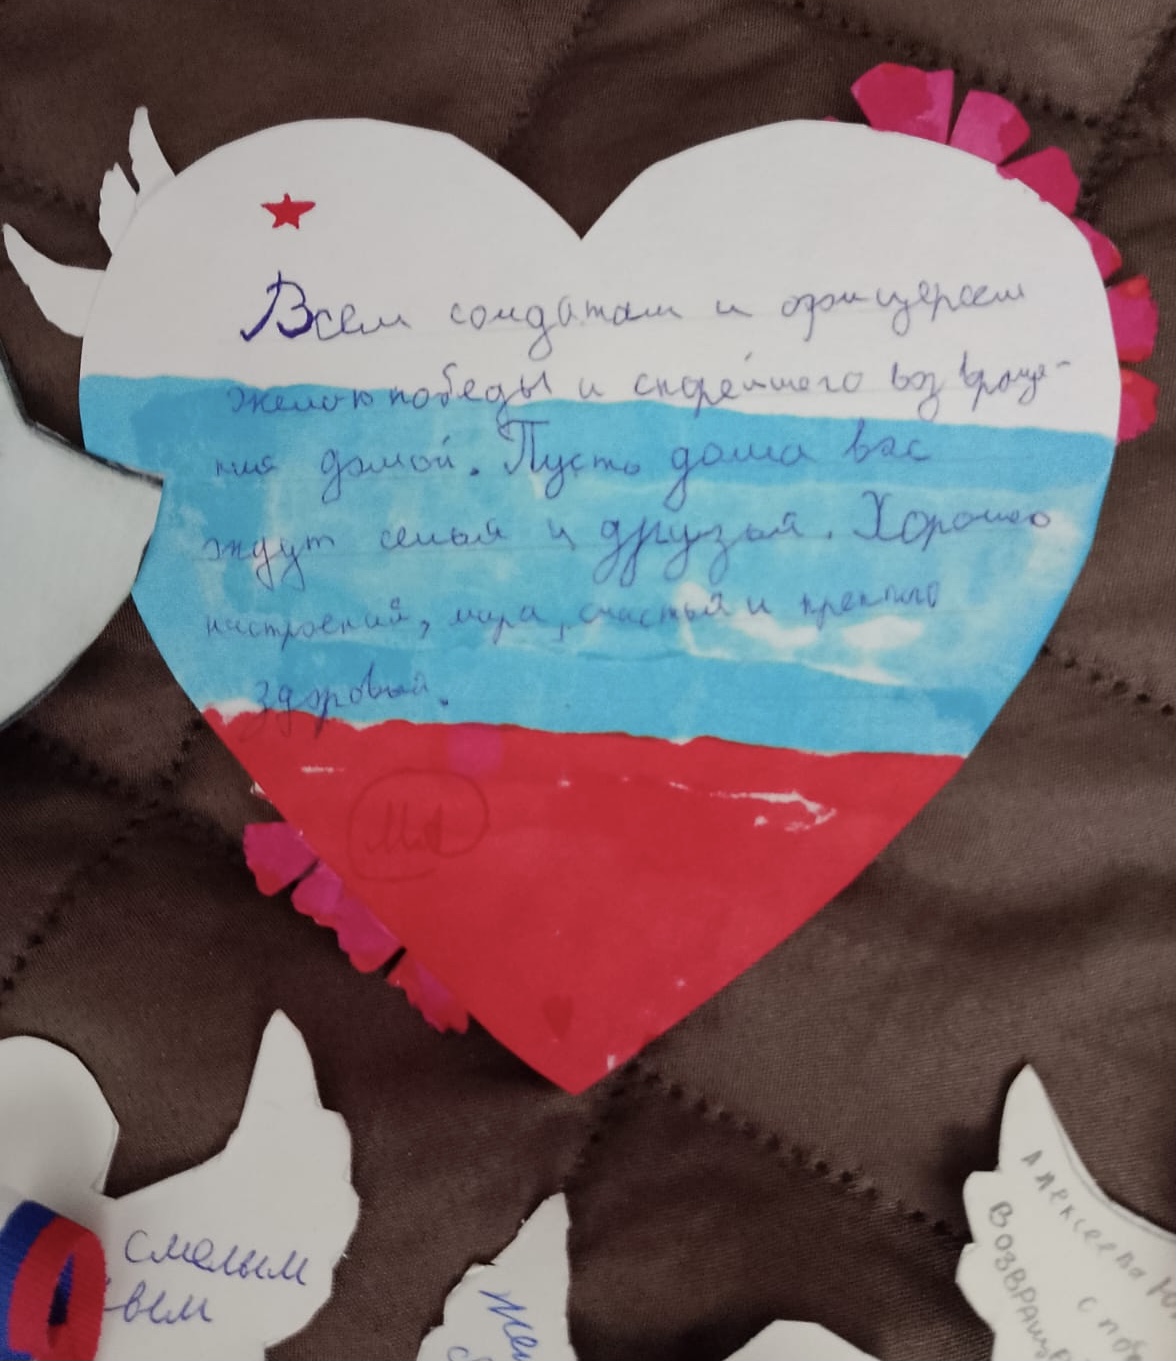 Всем солдатам и офицерам
желаю победы и скорейшего возвраще-
ния домой. Пусть дома вас
ждут семья и друзья. Хорошего
настроения, мира, счастья и крепкого
здоровья.
смелым
Алексеева
с поб
возвращ